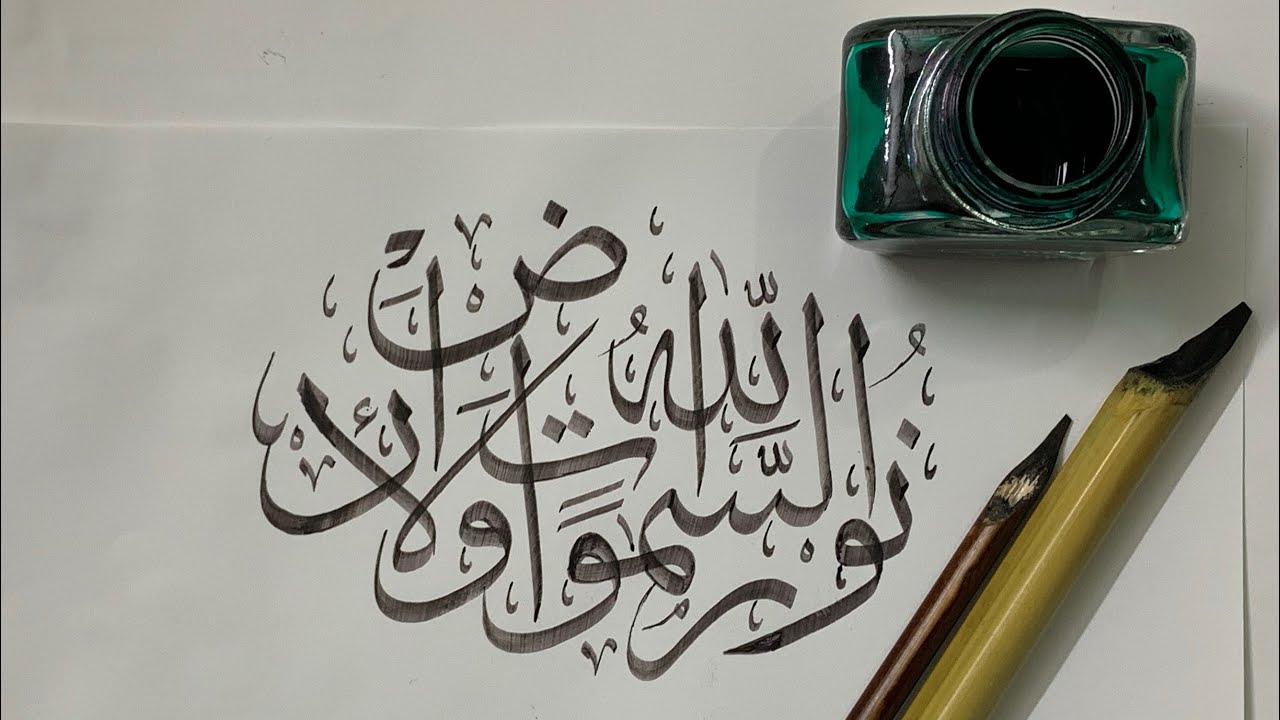 اللَّهُ نُورُ السَّمَوَاتِ وَالأَرْضِ